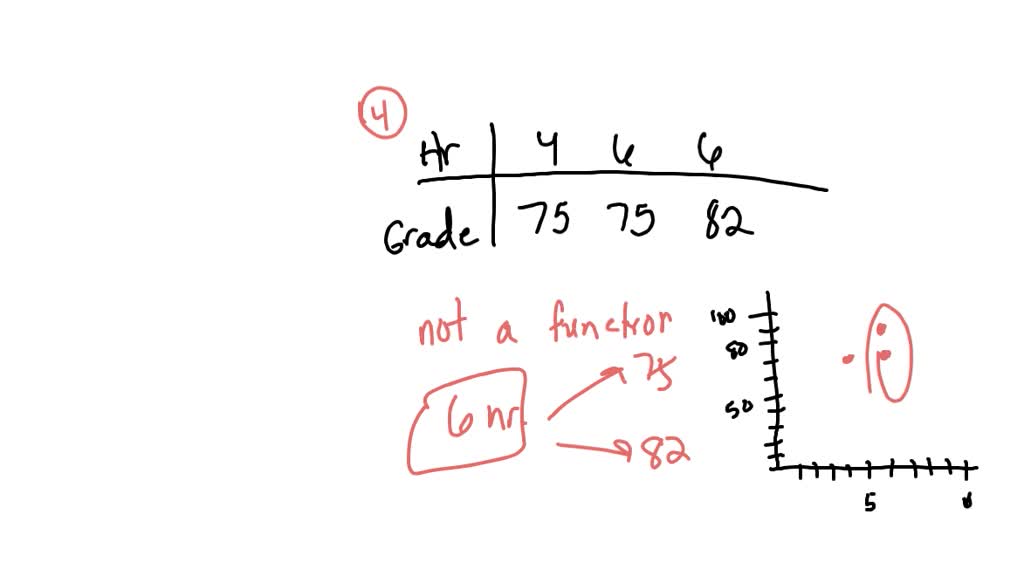 4
Hr 4 6 6
Grade 75 75 82
not a function
6 hr 75
82
100
80
50
5